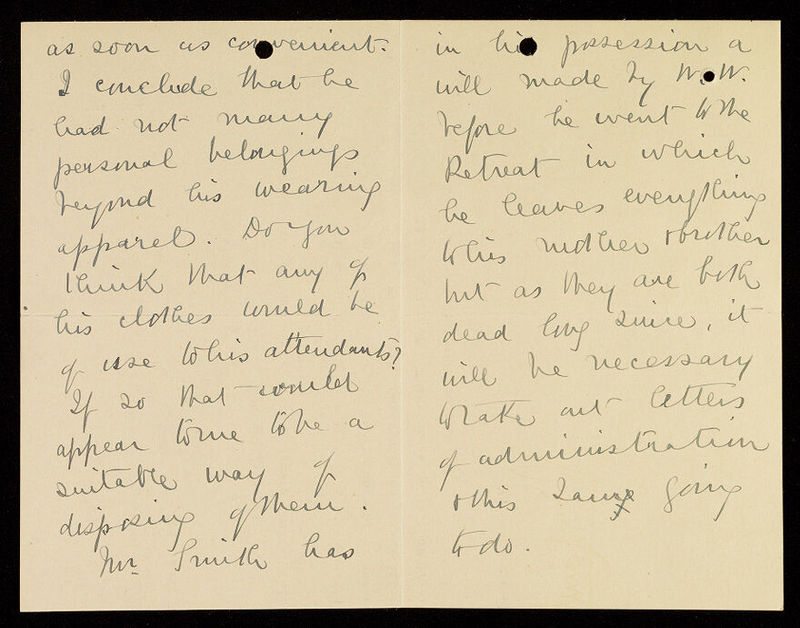 as soon as convenient.
I conclude that he
had not many
personal belongings
beyond his wearing
apparel. Do you
think that any of
his clothes would be
of use to his attendants?
If so that would
appear to me to be a
suitable way of
disposing of them.
Mr. Smith has
in his possession a
will made by W. W.
before he went to the
Retreat in which
he leaves everything
to his mother & brother
but as they are both
dead long since, it
will be necessary
to take out letters
of administration
& this I am going
to do.